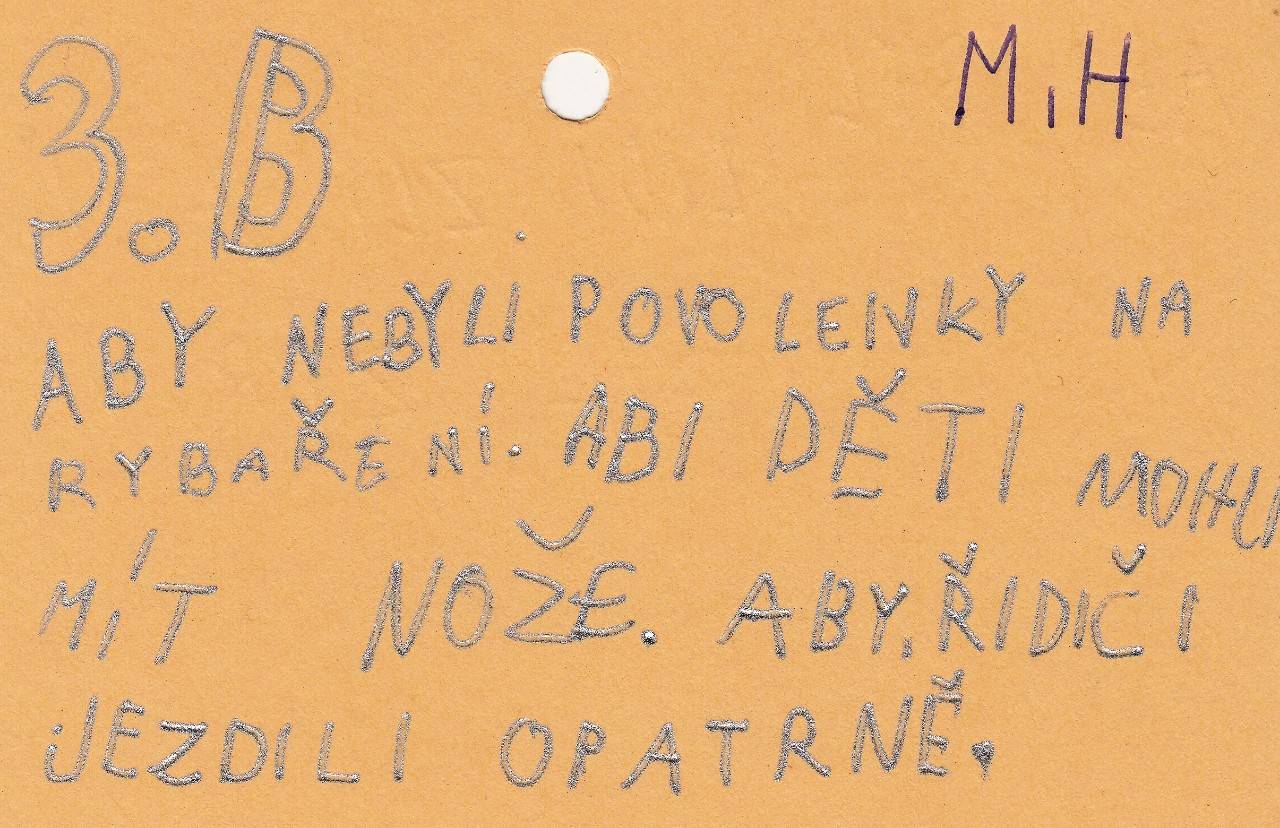 3.B MiH
ABY NEBYLI POVOLENKY NA
RYBAŘENÍ. ABI DĚTI MOHLI
MÍT NOŽE. ABY ŘIDIČI
JEZDILI OPATRNĚ.